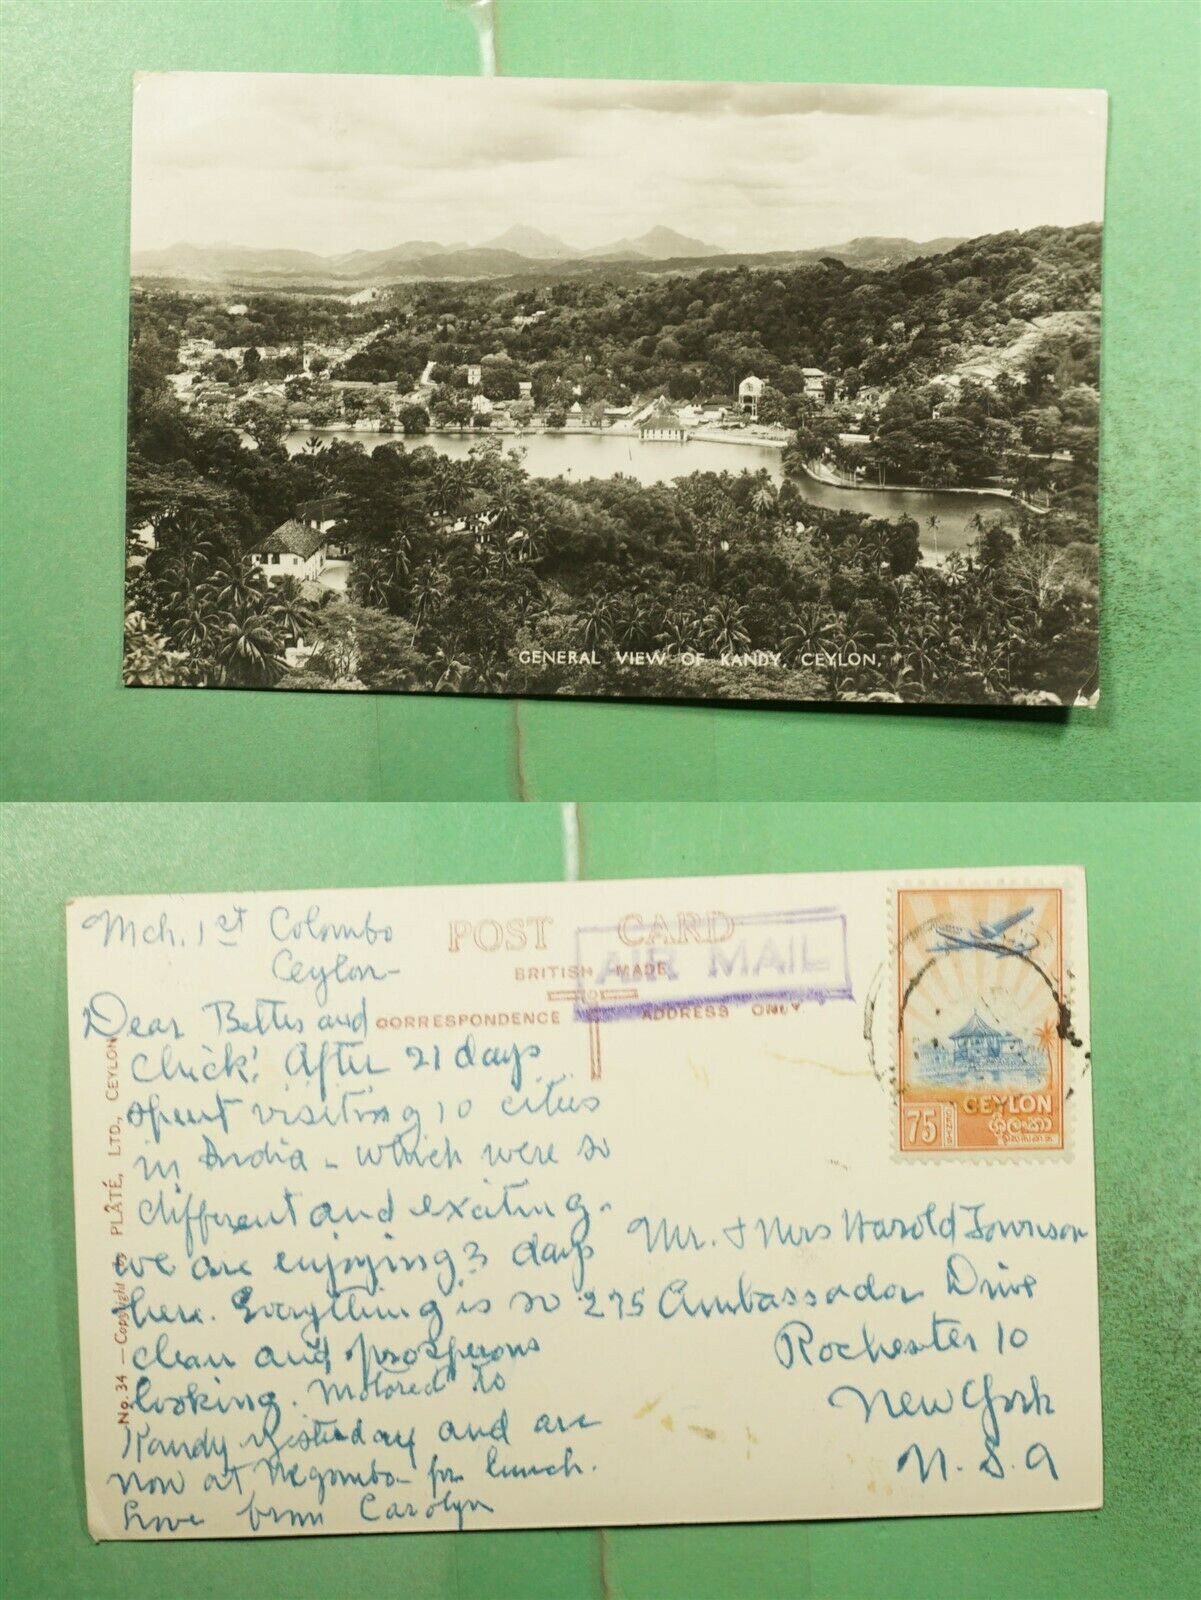 GENERAL VIEW OF KANDY, CEYLON.
Mch. 1st Colombo
Ceylon-
POST CARD
AIR MAIL
BRITISH MADE
CORRESPONDENCE
ADDRESS ONLY
Dear Bettes and
Chick! After 21 days
spent visiting 10 cities
in India - which were so
different and exciting -
we are enjoying 3 days
here. Everything is so
clean and prosperous
looking. Motored to
Kandy yesterday and are
now at Negombo - for lunch.
Love from Carolyn
No. 34 — Copyright by PLÂTÉ, LTD., CEYLON
75
CEYLON
ශ්‍රී ලංකා
இலங்கை
Mr. & Mrs Harold Townson
275 Ambassador Drive
Rochester 10
New York
U.S.A